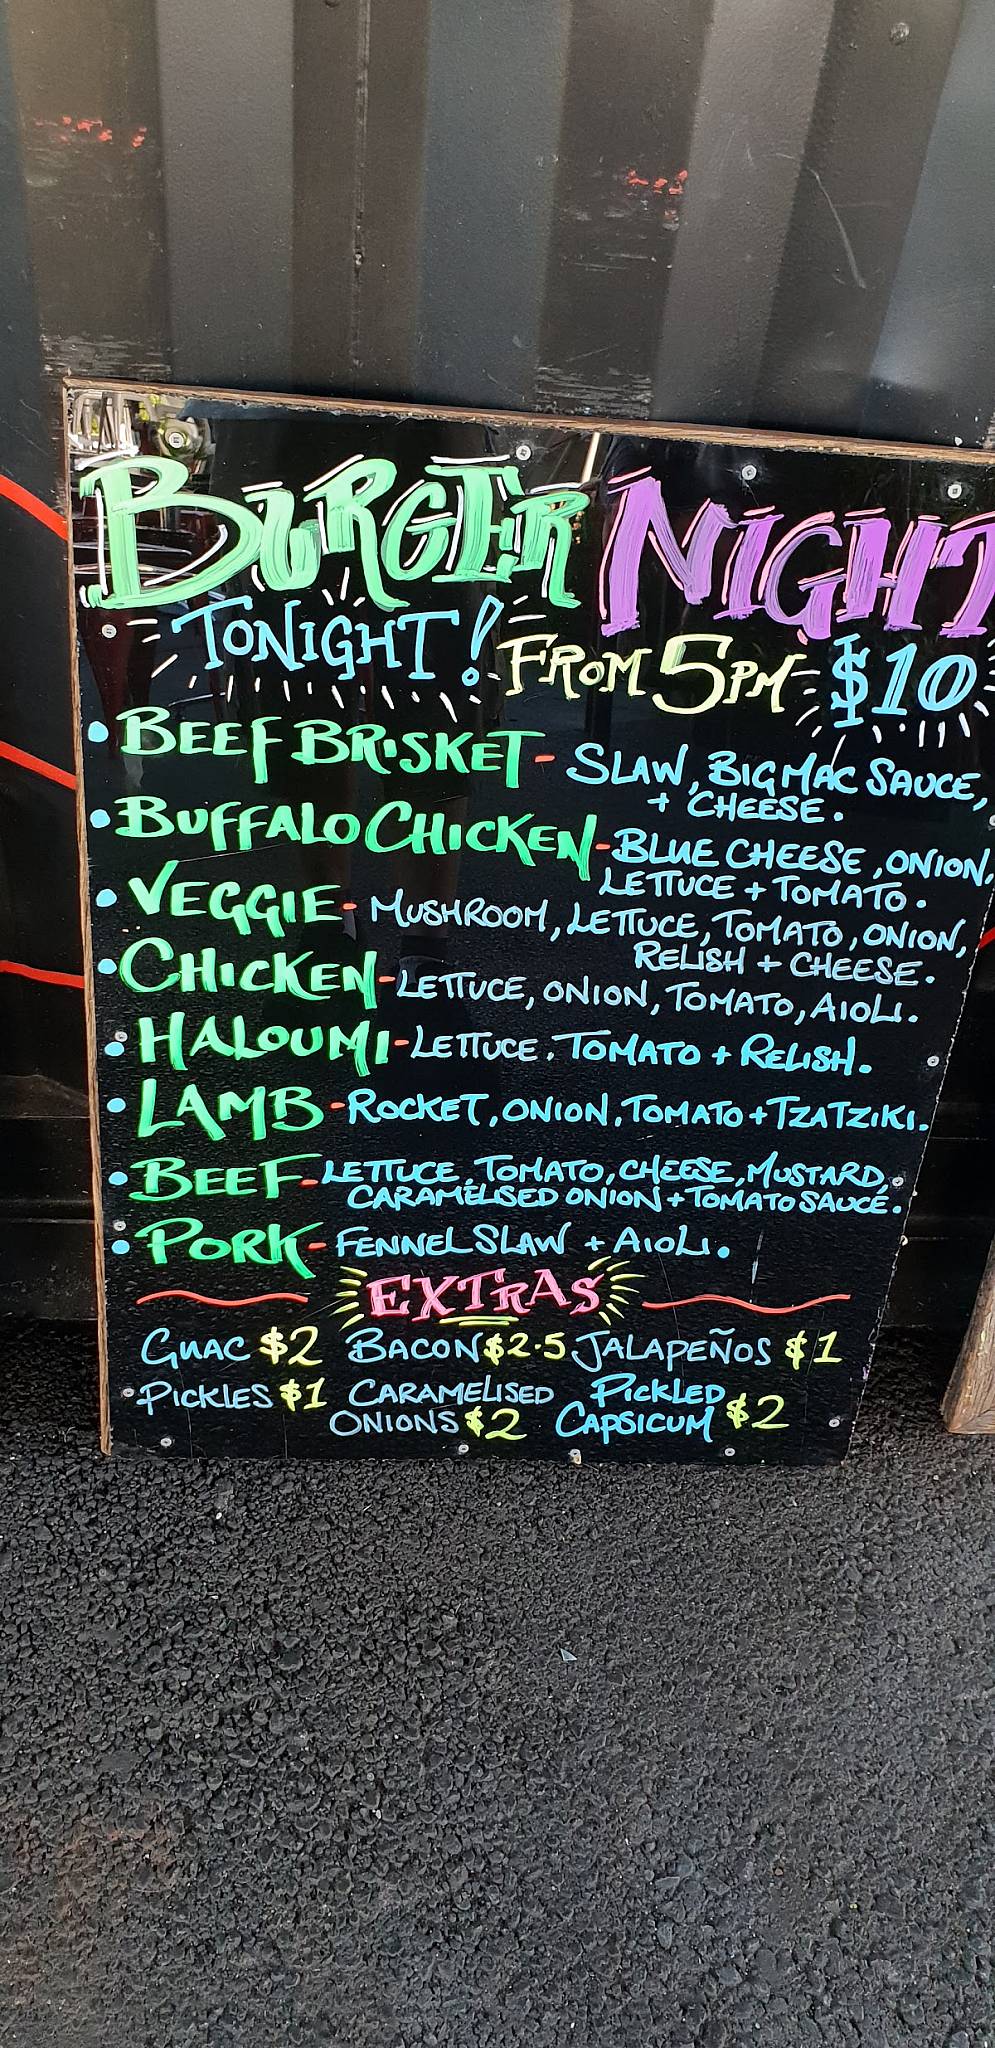 BURGER NIGHT
TONIGHT! FROM 5PM $10
• BEEF BRISKET - SLAW, BIGMAC SAUCE,
+ CHEESE.
• BUFFALO CHICKEN - BLUE CHEESE, ONION,
LETTUCE + TOMATO.
• VEGGIE - MUSHROOM, LETTUCE, TOMATO, ONION,
RELISH + CHEESE.
• CHICKEN - LETTUCE, ONION, TOMATO, AIOLI.
• HALOUMI - LETTUCE. TOMATO + RELISH.
• LAMB - ROCKET, ONION, TOMATO + TZATZIKI.
• BEEF - LETTUCE, TOMATO, CHEESE, MUSTARD,
CARAMELISED ONION + TOMATO SAUCE.
• PORK - FENNEL SLAW + AIOLI.
EXTRAS
GUAC $2 BACON $2.5 JALAPEÑOS $1
PICKLES $1 CARAMELISED ONIONS $2 PICKLED CAPSICUM $2